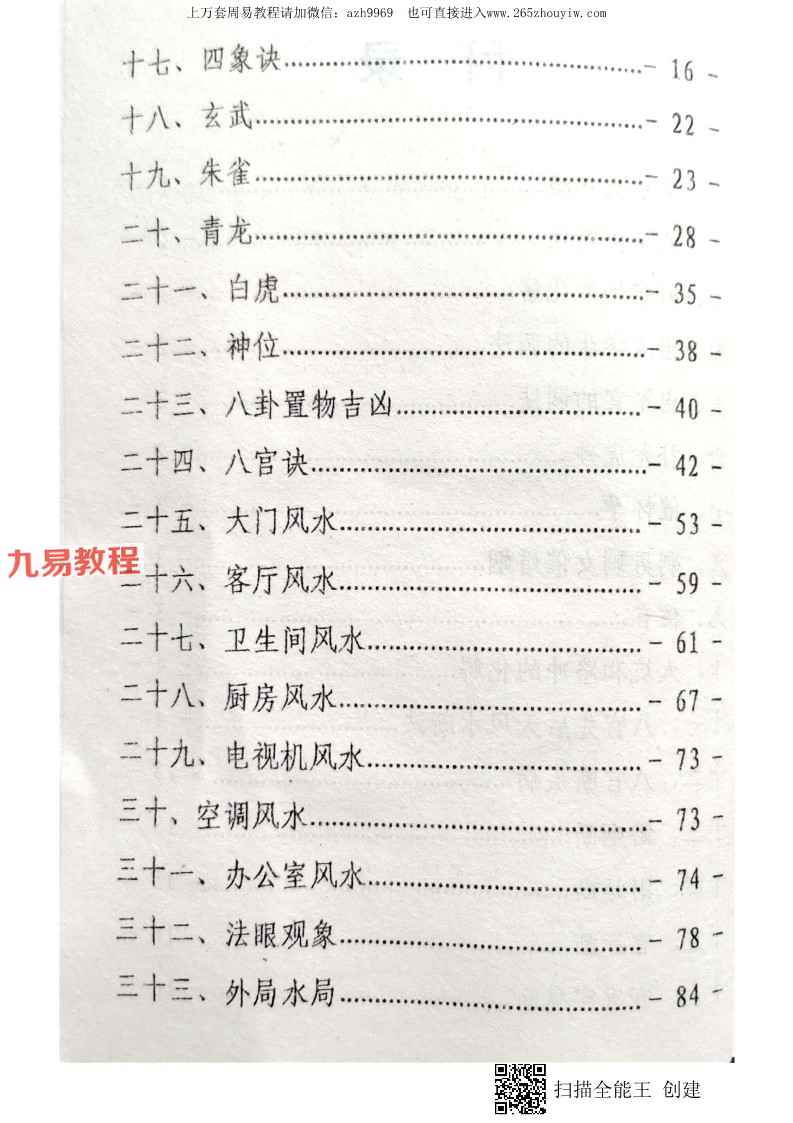 上万套周易教程请加微信：azh9969 也可直接进入www.265zhouyiw.com
十七、四象诀……………………………- 16 -
十八、玄武……………………………- 22 -
十九、朱雀……………………………- 23 -
二十、青龙……………………………- 28 -
二十一、白虎……………………………- 35 -
二十二、神位……………………………- 38 -
二十三、八卦置物吉凶……………………- 40 -
二十四、八宫诀…………………………- 42 -
二十五、大门风水………………………- 53 -
九易教程
二十六、客厅风水………………………- 59 -
二十七、卫生间风水……………………- 61 -
二十八、厨房风水………………………- 67 -
二十九、电视机风水……………………- 73 -
三十、空调风水…………………………- 73 -
三十一、办公室风水……………………- 74 -
三十二、法眼观象………………………- 78 -
三十三、外局水局………………………- 84 -
扫描全能王 创建